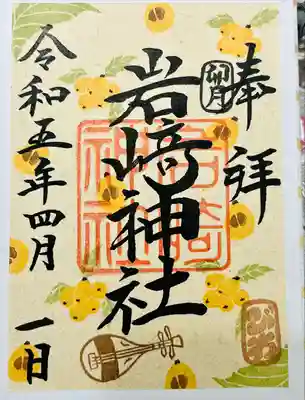 奉拝
卯月
岩﨑神社
岩崎神社
令和五年四月一日